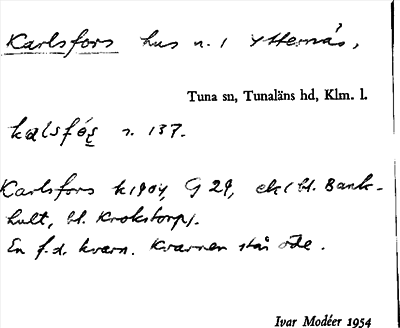 Karlsfors hus n. i Ytternäs,
Tuna sn, Tunaläns hd, Klm. l.
kalsfós n. 137.
Karlsfors k 1904, G 29, ek (bl. Bank-
hult, bl. Krokstorp).
En f.d. kvarn. Kvarnen står öde.
Ivar Modéer 1954